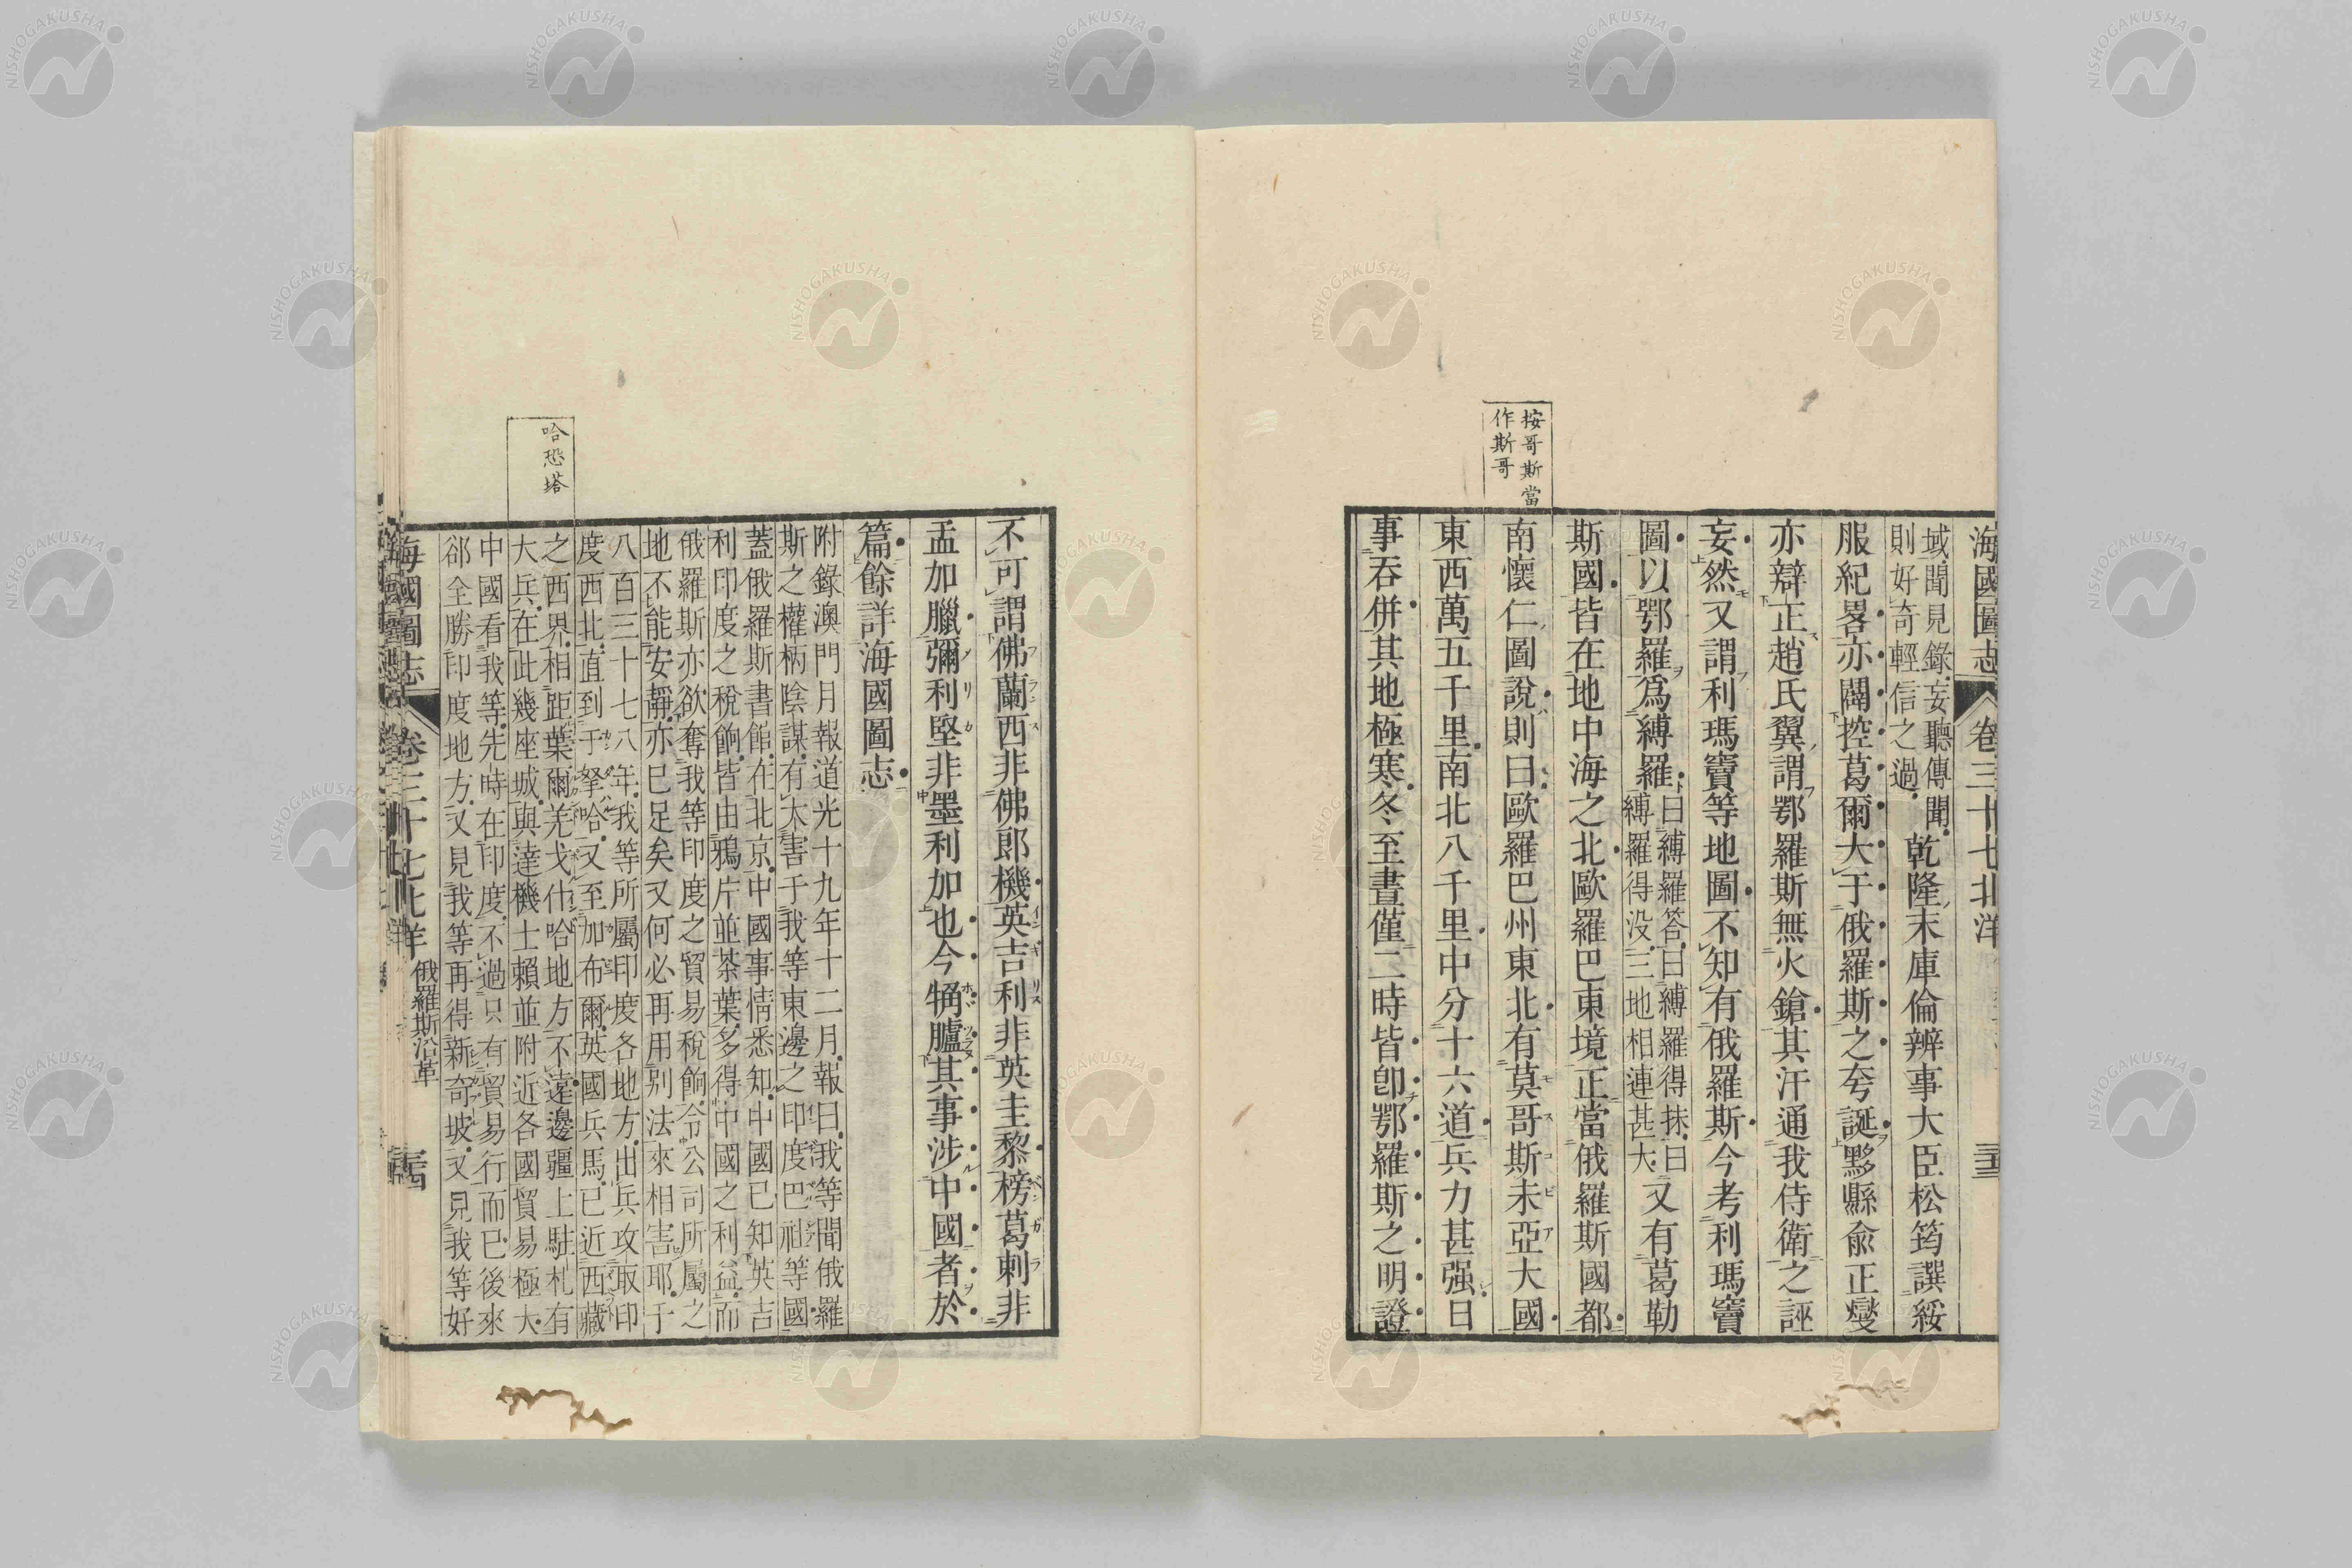 海國圖志 卷三十七北洋
域聞見錄妄聽傳聞
則好奇輕信之過
乾隆末庫倫辨事大臣松筠譔綏
服紀畧亦闢控葛爾大于俄羅斯之夸誕黟縣俞正燮
亦辯正趙氏翼謂鄂羅斯無火鎗其汗通我侍衛之誣
妄然又謂利瑪竇等地圖不知有俄羅斯今考利瑪竇
圖以鄂羅爲縛羅
曰縛羅答曰縛羅得抹曰
縛羅得没三地相連甚大
又有葛勒
斯國皆在地中海之北歐羅巴東境正當俄羅斯國都
按哥斯當
作斯哥
南懷仁圖說則曰歐羅巴州東北有莫哥斯未亞大國
東西萬五千里南北八千里中分十六道兵力甚强日
事吞併其地極寒冬至晝僅二時皆卽鄂羅斯之明證
不可謂佛蘭西非佛郎機英吉利非英圭黎榜葛剌非
孟加臘彌利堅非墨利加也今 其事涉中國者於
篇餘詳海國圖志
附錄澳門月報道光十九年十二月報曰我等聞俄羅
斯之權柄陰謀有大害于我等東邊之印度巴社等國
蓋俄羅斯書館在北京中國事情悉知中國已知英吉
利印度之稅餉皆由鴉片並茶葉多得中國之利益而
俄羅斯亦欲奪我等印度之貿易稅餉令公司所屬之
地不能安靜亦已足矣又何必再用别法來相害耶于
八百三十七八年我等所屬印度各地方出兵攻取印
度西北直到于孥哈又至加布爾英國兵馬已近西藏
哈恐塔
之西界相距葉爾羌戈什哈地方不遠邊疆上駐札有
大兵在此幾座城與達機士賴並附近各國貿易極大
中國看我等先時在印度不過只有貿易行而已後來
郤全勝印度地方又見我等再得新奇坡又見我等好
海國圖志 卷三十七北洋 俄羅斯沿革